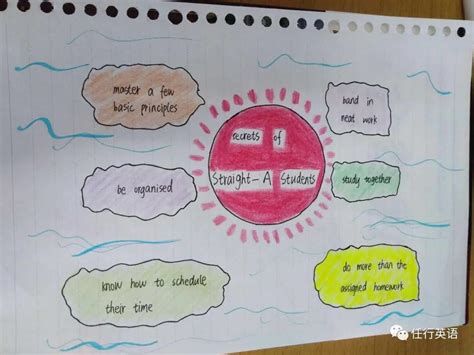 master a few
basic principles
hand in
neat work
secrets of
Straight-A Students
be organised
study together
know how to schedule
their time
do more than the
assigned homework
任行英语